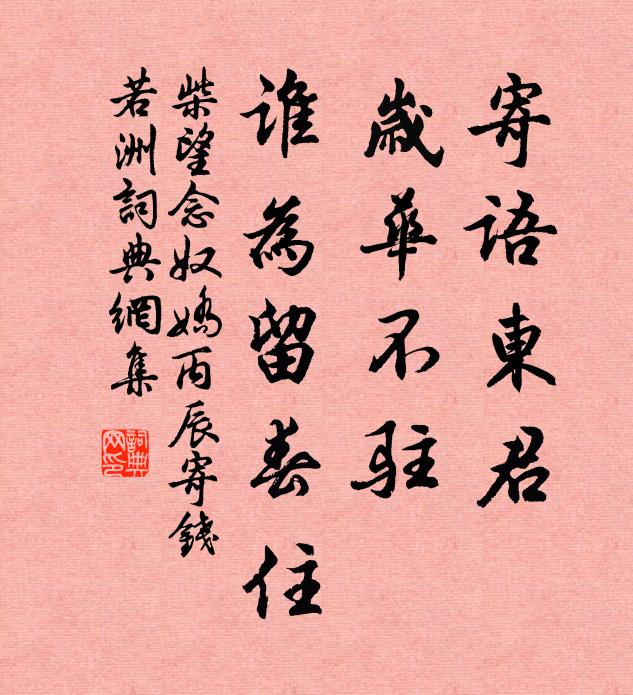 寄語東君
歲華不駐
誰為留春住
柴望念奴嬌丙辰寄錢
若洲詞典網集
詞典
网印